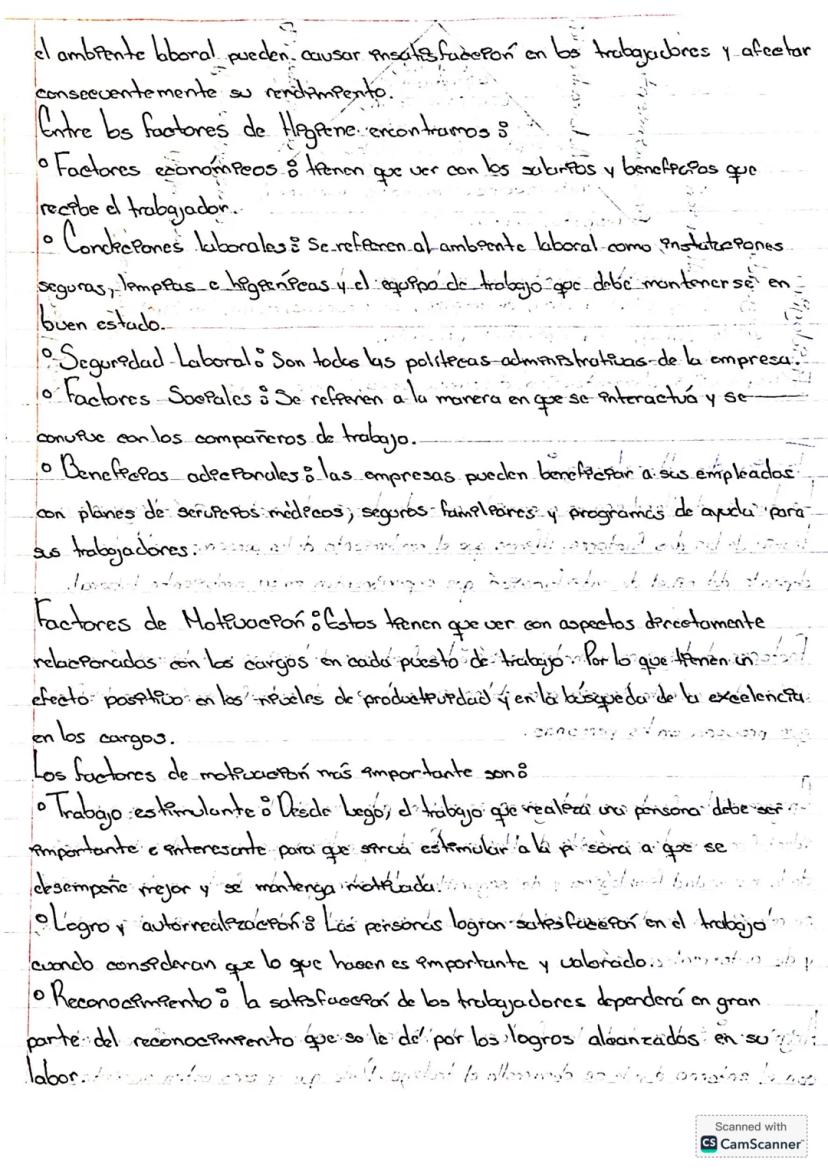 el ambiente laboral pueden causar insatisfacción en los trabajadores y afectar
consecuentemente su rendimiento.
Entre los factores de Higiene encontramos:
° Factores económicos: tienen que ver con los salarios y beneficios que
recibe el trabajador.
° Condiciones laborales: Se refieren al ambiente laboral como instalaciones
seguras, limpias e higiénicas y el equipo de trabajo que debe mantenerse en
buen estado.
° Seguridad Laboral: Son todas las políticas administrativas de la empresa.
° Factores Sociales: Se refieren a la manera en que se interactuá y se
convive con los compañeros de trabajo.
° Beneficios adicionales: las empresas pueden beneficiar a sus empleados
con planes de servicios médicos, seguros familiares y programas de ayuda para
sus trabajadores.
Factores de Motivación: Estos tienen que ver con aspectos directamente
relacionados con los cargos en cada puesto de trabajo. Por lo que tienen un
efecto positivo en los niveles de productividad y en la búsqueda de la excelencia
en los cargos.
Los factores de motivación más importante son:
° Trabajo estimulante: Desde luego, el trabajo que realiza una persona debe ser
importante e interesante para que sirva estimular a la p sona a que se
desempeñe mejor y se mantenga motivada.
° Logro y autorrealización: Las personas logran satisfacción en el trabajo
cuando consideran que lo que hacen es importante y valorado.
° Reconocimiento: la satisfacción de los trabajadores dependerá en gran
parte del reconocimiento que se le dé por los logros alcanzados en su
labor.
Scanned with
CS CamScanner